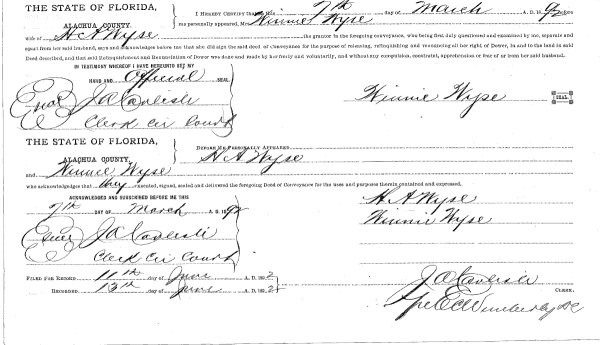 THE STATE OF FLORIDA,
ALACHUA COUNTY.
I HEREBY CERTIFY, That on this 7th day of March A.D. 1892 before
me personally appeared, Mrs. Winnie Wyse
wife of H A Wyse the grantor in the foregoing conveyance, who being first duly questioned and examined by me, separate and
apart from her said husband, says and acknowledges before me that she did sign the said deed of Conveyance for the purpose of releasing, relinquishing and renouncing all her right of Dower, in and to the land in said
Deed described, and that said Relinquishment and Renunciation of Dower was done and made by her freely and voluntarily, and without any compulsion, constraint, apprehension or fear of or from her said husband.
IN TESTIMONY WHEREOF I HAVE HEREUNTO SET MY
HAND AND Official SEAL
Seal J A Carlisle
Clerk Cir Court
Winnie Wyse SEAL.
THE STATE OF FLORIDA,
ALACHUA COUNTY.
BEFORE ME PERSONALLY APPEARED
H A Wyse
and Winnie Wyse
who acknowledges that they executed, signed, sealed and delivered the foregoing Deed of Conveyance for the uses and purposes therein contained and expressed.
ACKNOWLEDGED AND SUBSCRIBED BEFORE ME THIS
7th DAY OF March A. D. 1892
H A Wyse
Winnie Wyse
Seal J A Carlisle
Clerk Cir Court
FILED FOR RECORD 11th day of June A. D. 1892
RECORDED 13th day of June A. D. 1892
J A Carlisle CLERK.
per E C Wimberly DC